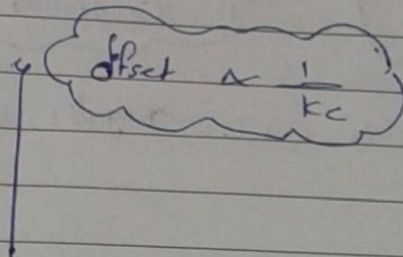 y offset ∝ 1/Kc